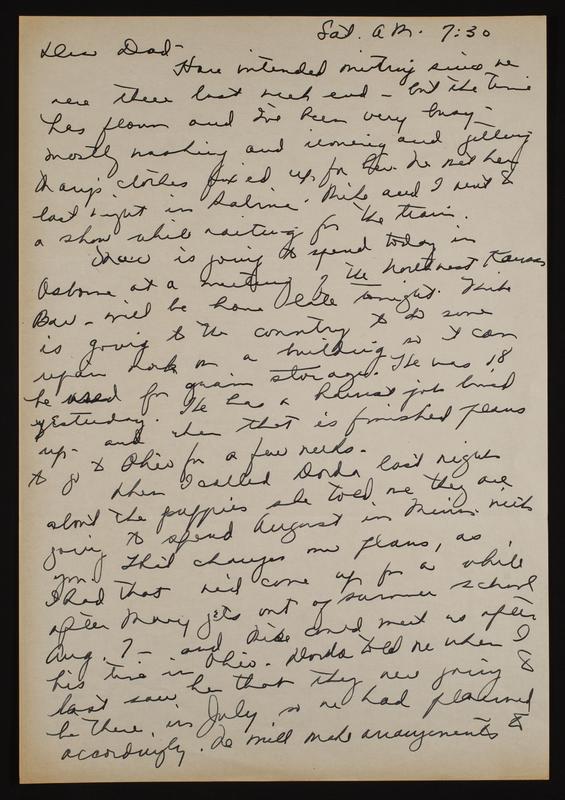 Sat. A.M. 7:30
Dear Dad-
Have intended writing since we
were there last week end - but the time
has flown and I've been very busy -
mostly washing and ironing and getting
Mary's clothes fixed up for her. We met her
last night in Salina. Mike and I went to
a show while waiting for the train.
is going to spend today in
Osborne at a meeting of the Northwest Kansas
Bar - will be home late tonight. Mike
is going to the country to do some
repair work on a building so it can
be used for grain storage. He was 18
yesterday. He has a harvest job lined
up - and when that is finished plans
to go to Ohio for a few weeks.
When I called Dorda last night
about the puppies she told me they are
going to spend August in Minn. with
you. That changes our plans, as
I had that we'd come up for a while
after Mary gets out of summer school
Aug. 7 - and Mike could meet us after
his time in Ohio. Dorda told me when I
last saw her that they were going to
be there in July, so we had planned
accordingly. We will make arrangements to